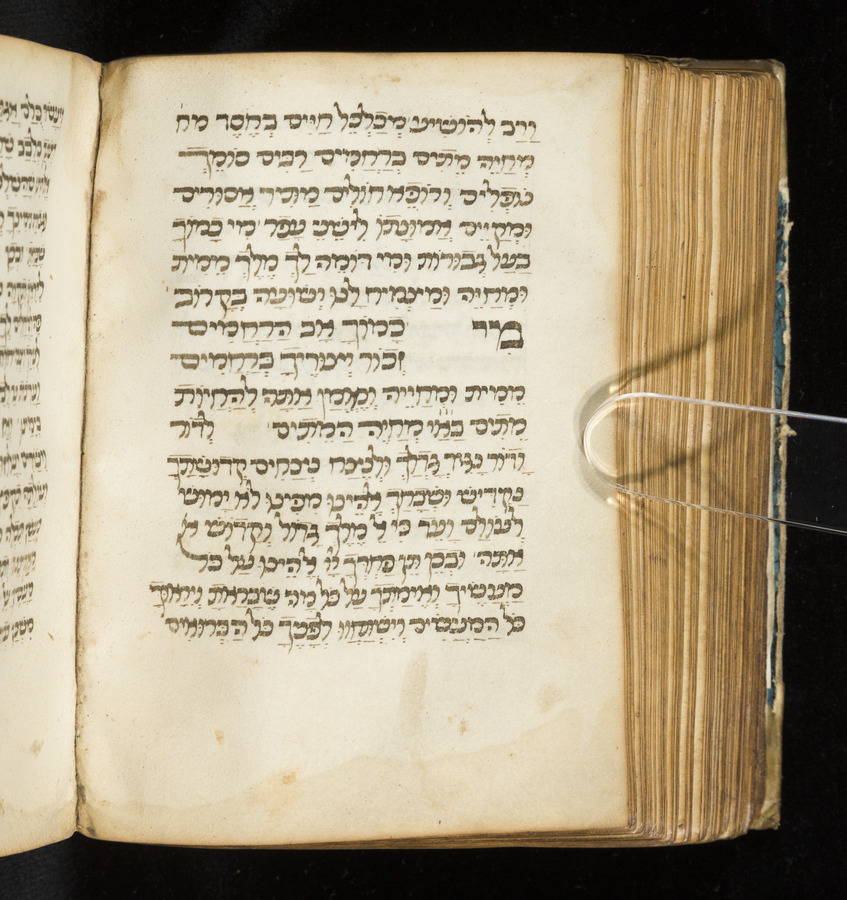 ורב להושיע מכלכל חיים בחסד מח
מחיה מתים ברחמים רבים סומך
נופלים ורופא חולים מתיר אסורים
ומקיים אמונתו לישיני עפר מי כמוך
בעל גבורות ומי דומה לך מלך ממית
ומחיה ומצמיח לנו ישועה בקרוב
מי כמוך אב הרחמים
זכור יצוריך ברחמים
ממית ומחייה ונאמן אתה להחיות
מתים באי מחיה המתים לדור
ודור נגיד גדלך ולנצח נצחים קדושתך
נקדיש ושבחך להינו מפינו לא ימוש
לעולם ועד כי ל מלך גדול וקדוש א
אתה ובכן תן פחדך לו להינו על כל
מעשיך ואימתך על כל מה שבראת ויראוך
כל המעשים וישתחוו לפניך כל הברואים